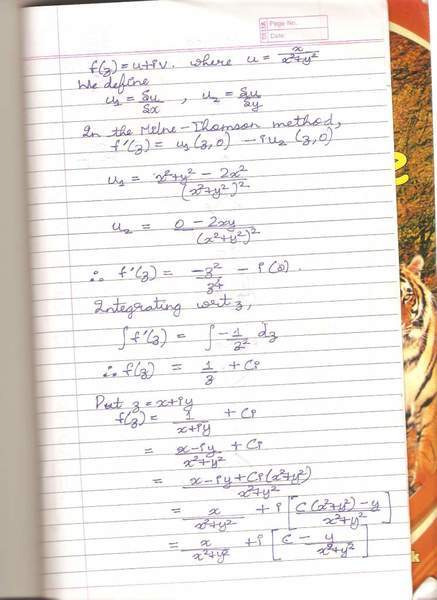 Page No.
Date
f(z) = u+iv. where u = x/(x²+y²)
We define
u₁ = δu/δx , u₂ = δu/δy
In the Milne-Thomson method,
f'(z) = u₁(z,0) - iu₂(z,0)
u₁ = (x²+y² - 2x²)/(x²+y²)²
u₂ = (0 - 2xy)/(x²+y²)²
∴ f'(z) = -z²/z⁴ - i(0).
Integrating wrt z,
∫f'(z) = ∫-1/z² dz
∴ f(z) = 1/z + Ci
Put z = x+iy
f(z) = 1/(x+iy) + Ci
= (x-iy)/(x²+y²) + Ci
= (x-iy+Ci(x²+y²))/(x²+y²)
= x/(x²+y²) + i[(C(x²+y²)-y)/(x²+y²)]
= x/(x²+y²) + i[C - y/(x²+y²)]